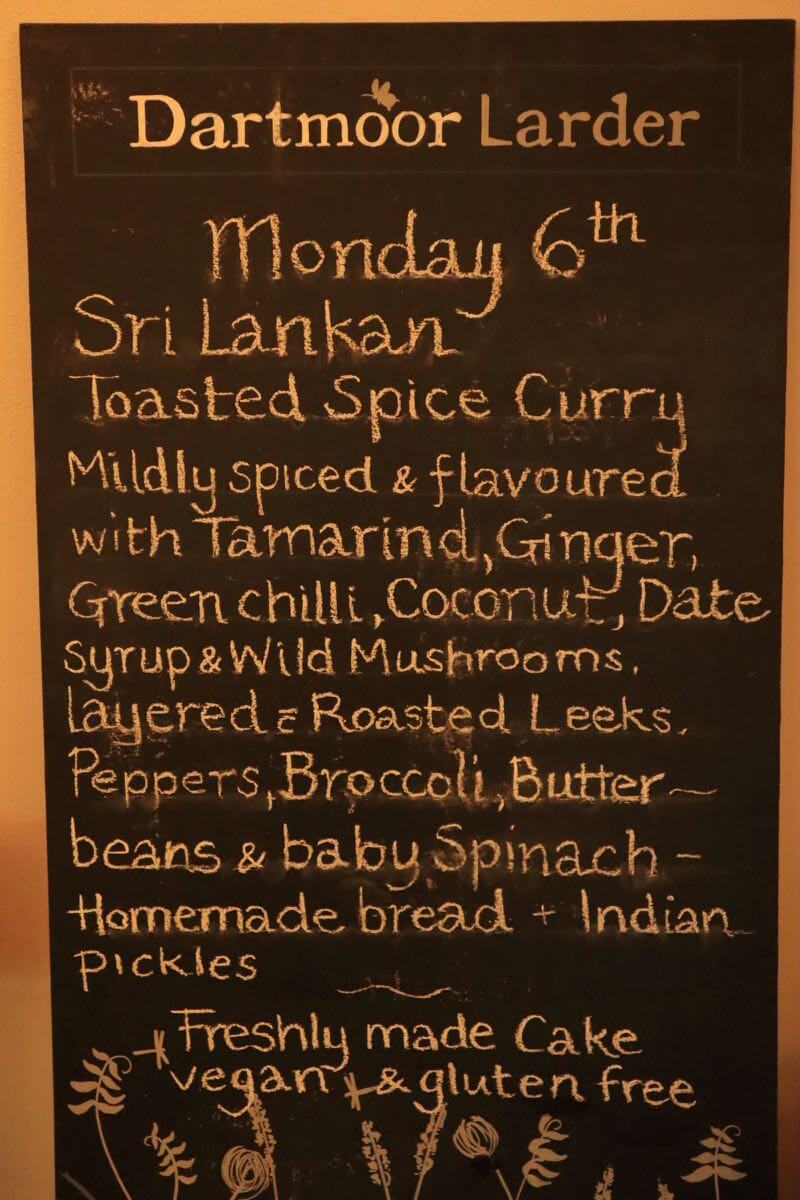 Dartmoor Larder
Monday 6th
Sri Lankan
Toasted Spice Curry
Mildly spiced & flavoured
with Tamarind, Ginger,
Green chilli, Coconut, Date
Syrup & Wild Mushrooms.
Layered c̄ Roasted Leeks.
Peppers, Broccoli, Butter~
beans & baby Spinach -
Homemade bread + Indian
Pickles
Freshly made Cake
vegan & gluten free